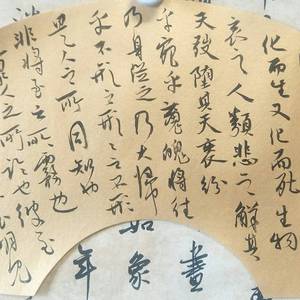 化而生又化而死生物
哀之人類悲之解其
天弢墮其天袠紛
乎宛乎魂魄將往
乃身從之乃大歸
乎不形之形形之不形
是人之所同知也
非將至之所務也
之所論也彼至
明見
畫
象
如
年